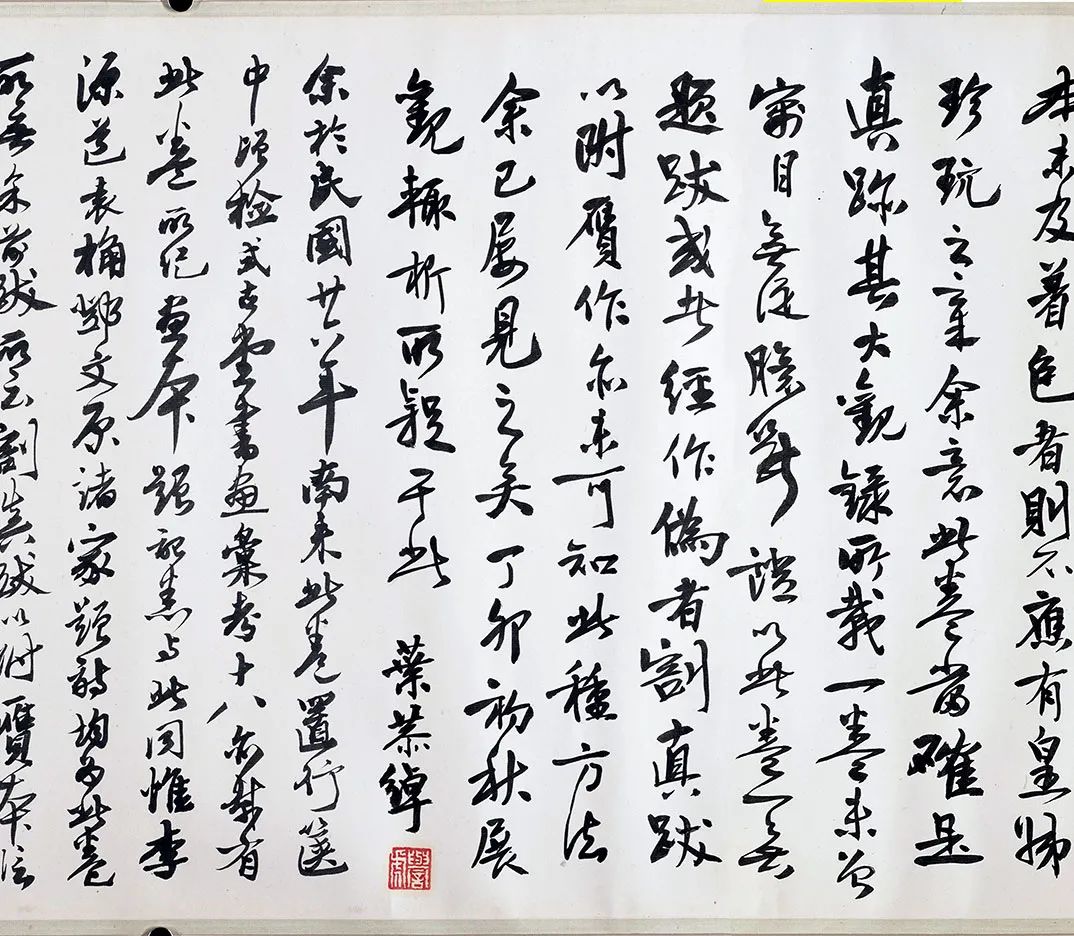 本未及着色者則不應有皇姊
珍玩之章余意此卷當確是
真跡其大觀錄所載一卷未曾
寓目無從臆斷證以此卷一無
題跋或經作偽者割真跋
以附贋作亦未可知此種方法
余已屢見之矣丁卯初秋展
觀輒析所疑于此 葉恭綽
譽虎
余於民國廿六年南来此卷置行篋
中頃檢式古堂書畫彙考十八亦載有
此卷所紀畫本題記悉与此同惟李
源道袁桷鄧文原諸家題詩均為此卷
所無余前跋所云割真跋以附贋本信